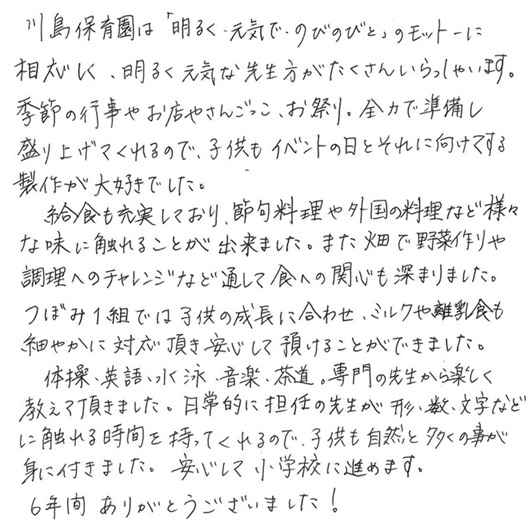 川島保育園は「明るく・元気で・のびのびと」のモットーに
相応しく、明るく元気な先生方がたくさんいらっしゃいます。
季節の行事やお店やさんごっこ、お祭り。全力で準備し
盛り上げてくれるので、子供もイベントの日とそれに向けてする
製作が大好きでした。
給食も充実しており、節句料理や外国の料理など様々
な味に触れることが出来ました。また畑で野菜作りや
調理へのチャレンジなど通して食への関心も深まりました。
つぼみ1組では子供の成長に合わせ、ミルクや離乳食も
細やかに対応頂き安心して預けることができました。
体操、英語、水泳、音楽、茶道。専門の先生から楽しく
教えて頂きました。日常的に担任の先生が形、数、文字など
に触れる時間を持ってくれるので、子供も自然と多くの事が
身に付きました。安心して小学校に進めます。
6年間ありがとうございました!